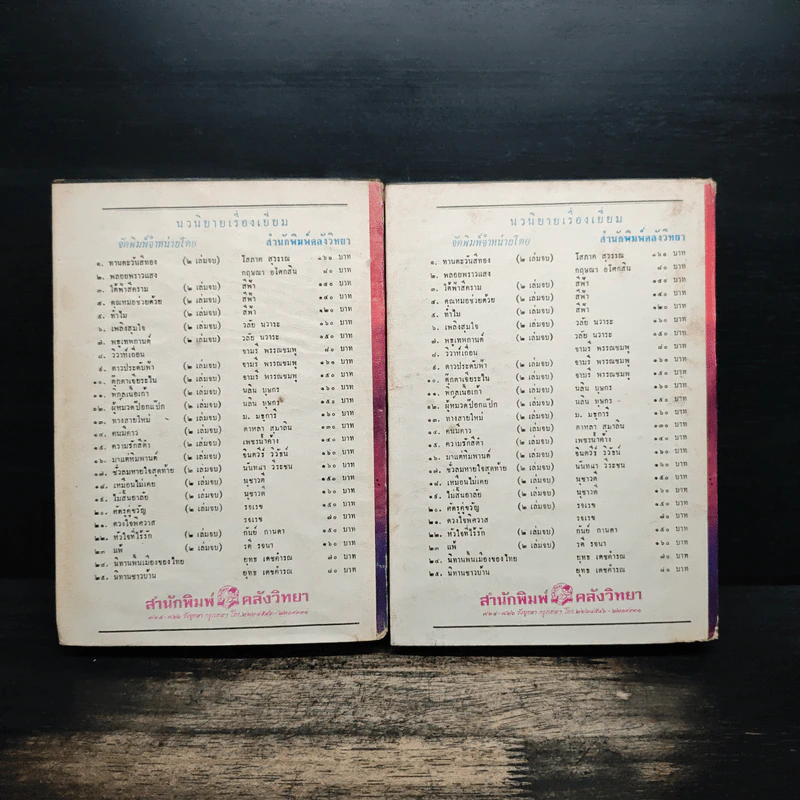 นวนิยายเรื่องเยี่ยม
จัดพิมพ์จำหน่ายโดย สำนักพิมพ์คลังวิทยา
๑. ทานตะวันสีทอง (๒ เล่มจบ) โสภาค สุวรรณ ๑๖๐ บาท
๒. พลอยพราวแสง กฤษณา อโศกสิน ๘๐ บาท
๓. ใต้ฟ้าสีคราม (๒ เล่มจบ) สีฟ้า ๑๕๐ บาท
๔. คุณหมอช่วยด้วย (๒ เล่มจบ) สีฟ้า ๑๔๐ บาท
๕. ทำไม (๒ เล่มจบ) สีฟ้า ๑๒๐ บาท
๖. เพลิงสุมใจ (๒ เล่มจบ) วลัย นวาระ ๑๖๐ บาท
๗. พรุเทพกานต์ (๒ เล่มจบ) วลัย นวาระ ๑๖๐ บาท
๘. วิวาห์เถื่อน จามรี พรรณชมพู ๘๐ บาท
๙. ดาวประดับฟ้า (๒ เล่มจบ) จามรี พรรณชมพู ๑๖๐ บาท
๑๐. ตุ๊กตาเจียระไน (๒ เล่มจบ) จามรี พรรณชมพู ๑๕๐ บาท
๑๑. พิกุลเนื้อเก้า (๒ เล่มจบ) นลิน บุษกร ๑๖๐ บาท
๑๒. ผู้หมวดป๊อกแป๊ก (๒ เล่มจบ) นลิน บุษกร ๑๕๐ บาท
๑๓. ทางสายใหม่ (๒ เล่มจบ) ม. มธุการี ๑๖๐ บาท
๑๔. คนมีคาว (๒ เล่มจบ) ดาหลา สุมาลิน ๑๓๐ บาท
๑๕. ความรักสีดำ (๒ เล่มจบ) เพชรน้ำค้าง ๑๔๐ บาท
๑๖. มาแต่หิมพานต์ (๒ เล่มจบ) จินตวีร์ วิวัธน์ ๑๖๐ บาท
๑๗. ชั่วลมหายใจสุดท้าย (๒ เล่มจบ) นันทนา วีระชน ๑๖๐ บาท
๑๘. เหมือนไม่เคย (๒ เล่มจบ) นุชาวดี ๑๕๐ บาท
๑๙. ไม่สิ้นอาลัย (๒ เล่มจบ) นุชาวดี ๑๖๐ บาท
๒๐. ศัตรูคู่ขวัญ (๒ เล่มจบ) รจเรข ๑๕๐ บาท
๒๑. ดวงใจพิศวาส รจเรข ๘๐ บาท
๒๒. หัวใจที่ไร้รัก (๒ เล่มจบ) กันย์ กานดา ๑๕๐ บาท
๒๓ แพ้ (๒ เล่มจบ) รตี รจนา ๑๖๐ บาท
๒๔. นิทานพื้นเมืองของไทย ยุทธ เดชคำรณ ๘๐ บาท
๒๕. นิทานชาวบ้าน ยุทธ เดชคำรณ ๘๐ บาท
สำนักพิมพ์ คลังวิทยา
นวนิยายเรื่องเยี่ยม
จัดพิมพ์จำหน่ายโดย สำนักพิมพ์คลังวิทยา
๑. ทานตะวันสีทอง (๒ เล่มจบ) โสภาค สุวรรณ ๑๖๐ บาท
๒. พลอยพราวแสง กฤษณา อโศกสิน ๘๐ บาท
๓. ใต้ฟ้าสีคราม (๒ เล่มจบ) สีฟ้า ๑๕๐ บาท
๔. คุณหมอช่วยด้วย (๒ เล่มจบ) สีฟ้า ๑๔๐ บาท
๕. ทำไม (๒ เล่มจบ) สีฟ้า ๑๒๐ บาท
๖. เพลิงสุมใจ (๒ เล่มจบ) วลัย นวาระ ๑๖๐ บาท
๗. พรุเทพกานต์ (๒ เล่มจบ) วลัย นวาระ ๑๖๐ บาท
๘. วิวาห์เถื่อน จามรี พรรณชมพู ๘๐ บาท
๙. ดาวประดับฟ้า (๒ เล่มจบ) จามรี พรรณชมพู ๑๖๐ บาท
๑๐. ตุ๊กตาเจียระไน (๒ เล่มจบ) จามรี พรรณชมพู ๑๕๐ บาท
๑๑. พิกุลเนื้อเก้า (๒ เล่มจบ) นลิน บุษกร ๑๖๐ บาท
๑๒. ผู้หมวดป๊อกแป๊ก (๒ เล่มจบ) นลิน บุษกร ๑๕๐ บาท
๑๓. ทางสายใหม่ (๒ เล่มจบ) ม. มธุการี ๑๖๐ บาท
๑๔. คนมีคาว (๒ เล่มจบ) ดาหลา สุมาลิน ๑๓๐ บาท
๑๕. ความรักสีดำ (๒ เล่มจบ) เพชรน้ำค้าง ๑๔๐ บาท
๑๖. มาแต่หิมพานต์ (๒ เล่มจบ) จินตวีร์ วิวัธน์ ๑๖๐ บาท
๑๗. ชั่วลมหายใจสุดท้าย (๒ เล่มจบ) นันทนา วีระชน ๑๖๐ บาท
๑๘. เหมือนไม่เคย (๒ เล่มจบ) นุชาวดี ๑๕๐ บาท
๑๙. ไม่สิ้นอาลัย (๒ เล่มจบ) นุชาวดี ๑๖๐ บาท
๒๐. ศัตรูคู่ขวัญ (๒ เล่มจบ) รจเรข ๑๕๐ บาท
๒๑. ดวงใจพิศวาส รจเรข ๘๐ บาท
๒๒. หัวใจที่ไร้รัก (๒ เล่มจบ) กันย์ กานดา ๑๕๐ บาท
๒๓ แพ้ (๒ เล่มจบ) รตี รจนา ๑๖๐ บาท
๒๔. นิทานพื้นเมืองของไทย ยุทธ เดชคำรณ ๘๐ บาท
๒๕. นิทานชาวบ้าน ยุทธ เดชคำรณ ๘๐ บาท
สำนักพิมพ์ คลังวิทยา